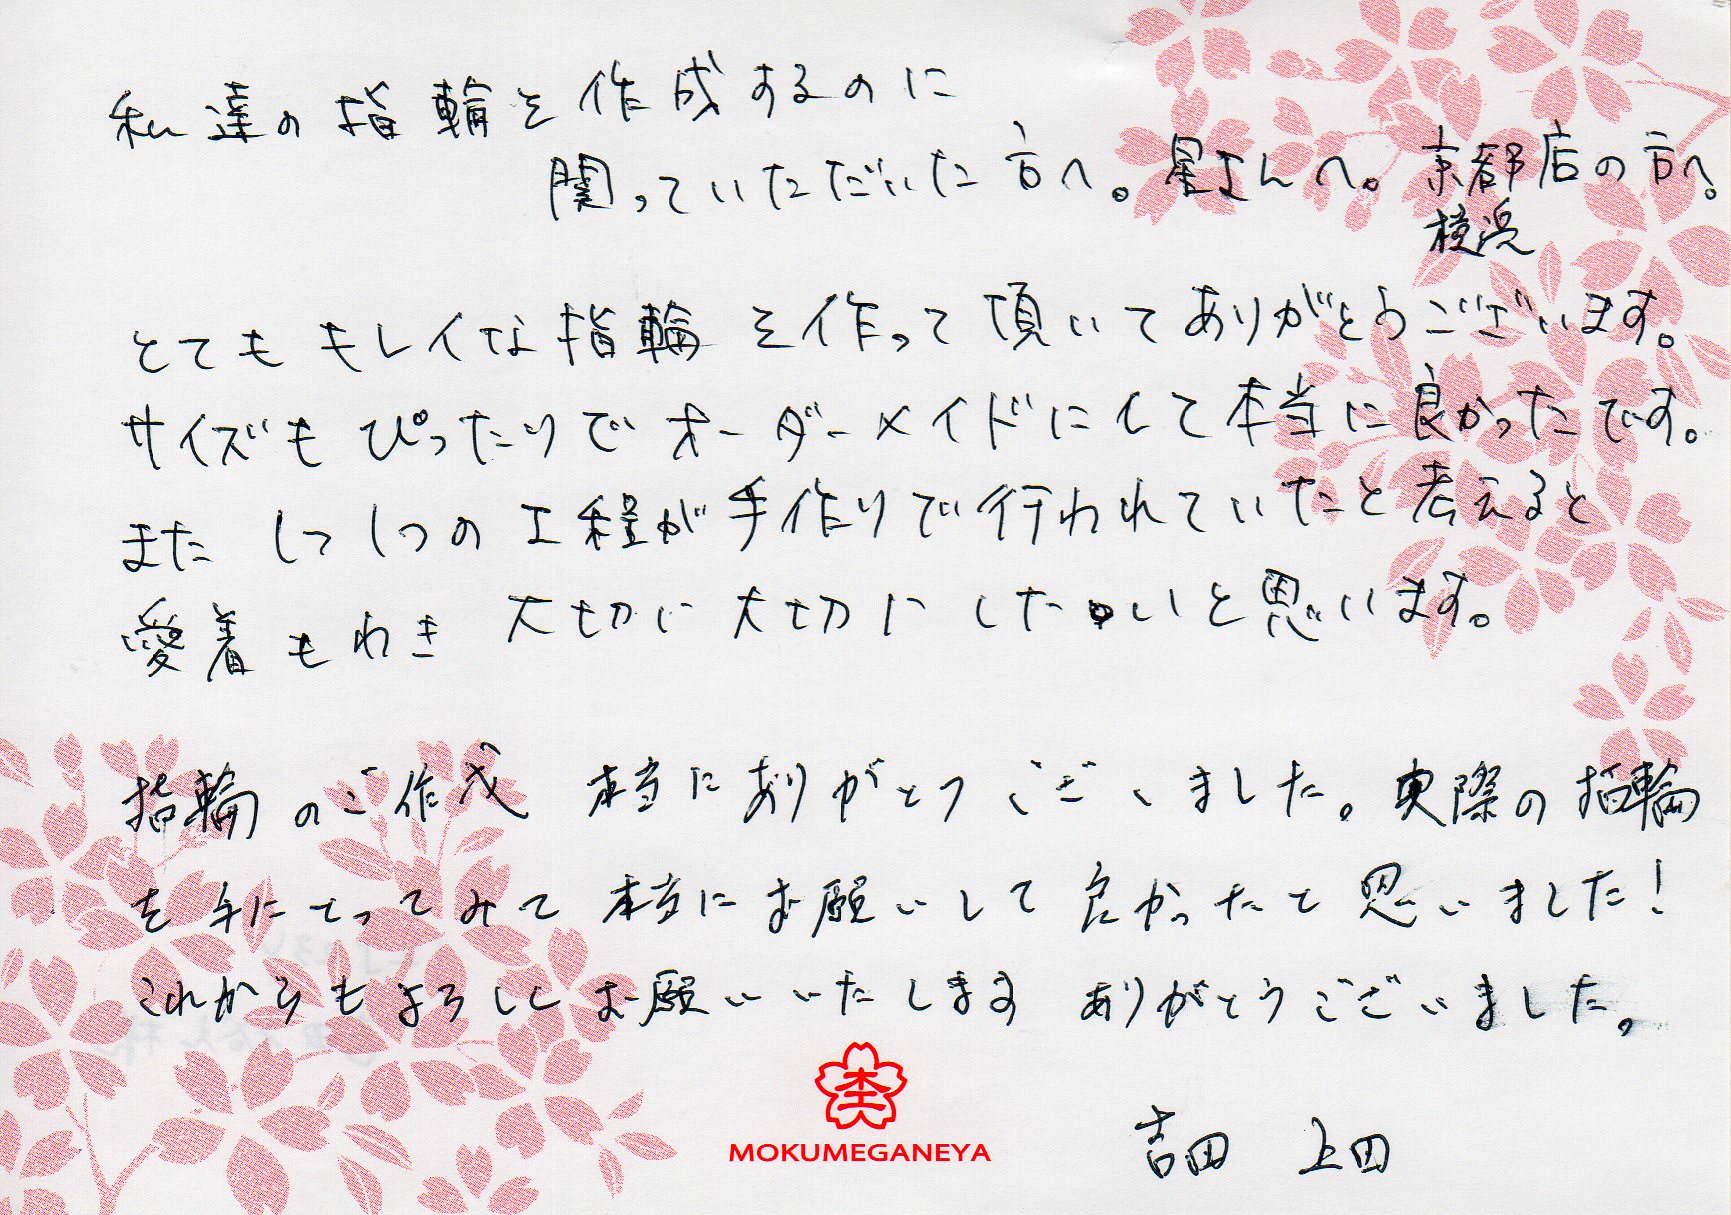 私達の指輪を作成するのに
関っていただいた方へ。星さんへ。京都店の方へ。
横浜
とてもキレイな指輪を作って頂いてありがとうございます。
サイズもぴったりでオーダーメイドにして本当に良かったです。
また1つ1つの工程が手作りで行われていたと考えると
愛着もわき 大切に大切にしたいと思います。
指輪のご作成 本当にありがとうございました。実際の指輪
を手にとってみて本当にお願いして良かったと思いました!
これからもよろしくお願いいたします ありがとうございました。
MOKUMEGANEYA
吉田 上田